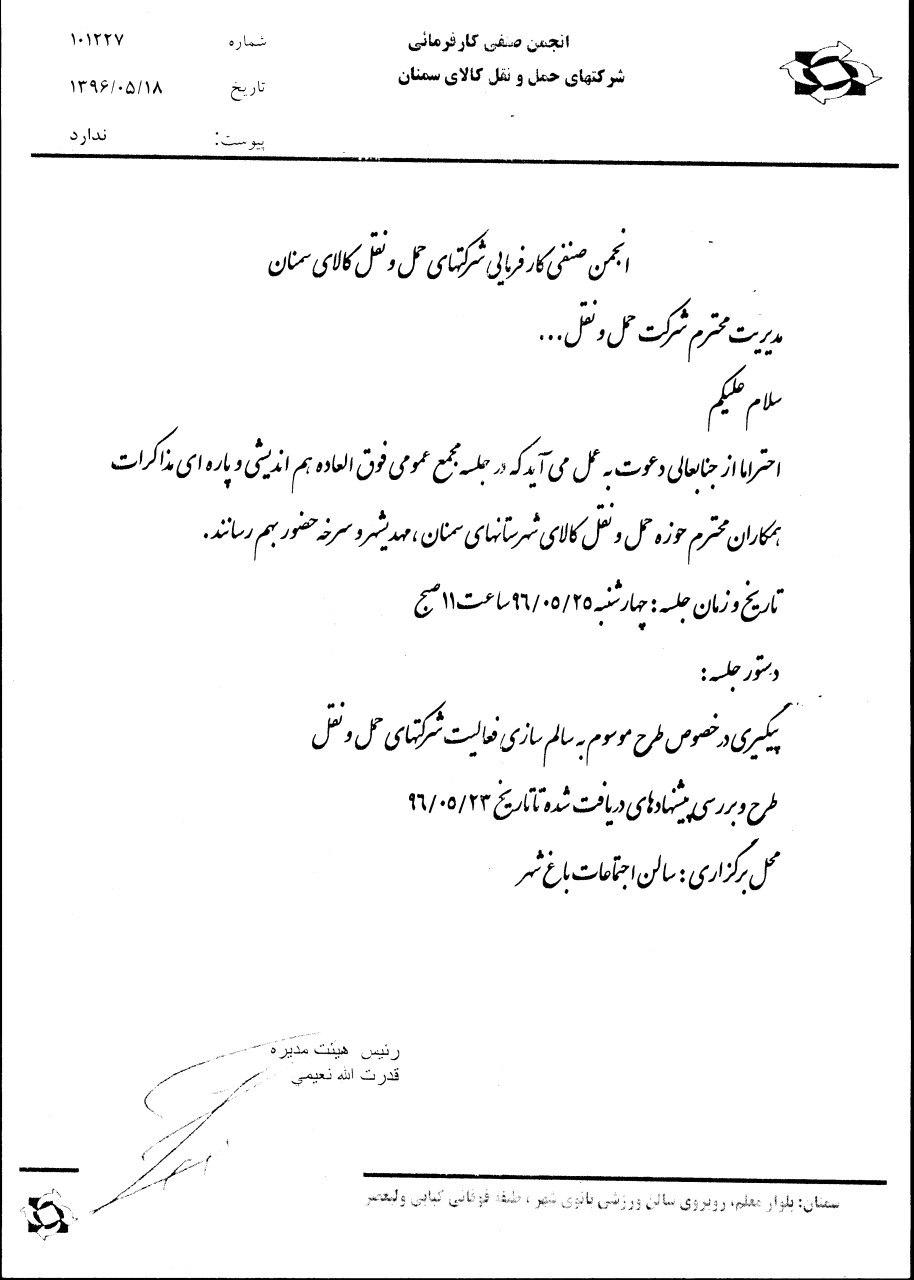 انجمن صنفی کارفرمائی
شرکتهای حمل و نقل کالای سمنان
شماره ۱۰۱۲۲۷
تاریخ ۱۳۹۶/۰۵/۱۸
پیوست: ندارد
انجمن صنفی کارفرمایی شرکتهای حمل و نقل کالای سمنان
مدیریت محترم شرکت حمل و نقل...
سلام علیکم
احتراما از جنابعالی دعوت به عمل می آید که در جلسه مجمع عمومی فوق العاده هم اندیشی و پاره ای مذاکرات
همکاران محترم حوزه حمل و نقل کالای شهرستانهای سمنان ، مهدیشهر و سرخه حضور بهم رسانند.
تاریخ و زمان جلسه : چهارشنبه ۹۶/۰۵/۲۵ ساعت ۱۱ صبح
دستور جلسه :
پیگیری در خصوص طرح موسوم به سالم سازی فعالیت شرکتهای حمل و نقل
طرح و بررسی پیشنهادهای دریافت شده تا تاریخ ۹۶/۰۵/۲۳
محل برگزاری : سالن اجتماعات باغ شهر
رئیس هیئت مدیره
قدرت الله نعیمی
سمنان: بلوار معلم، روبروی سالن ورزشی بانوی شهر ، طبقه فوقانی کبابی ولیعصر